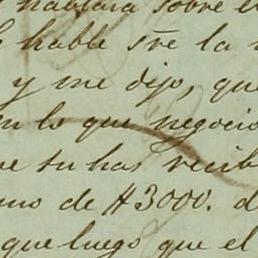 hablara sobre el
hable sre la
y me dijo, que
en lo que negocio
tu has recib
mo de $3000. d
que luego que el